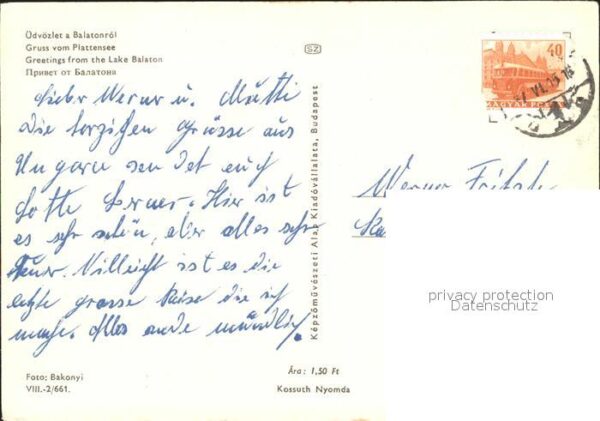 Üdvözlet a Balatonról
Gruss vom Plattensee
Greetings from the Lake Balaton
Привет от Балатона
SZ
40
MAGYAR POSTA
VI. 15 18
Lieber Werner u. Mutti
Die herzichen Grüsse aus
Ungarn sendet euch
Lotte Berner. Hier ist
es sehr schön, aber alles sehr
teuer. Villeicht ist es die
letzte grosse Reise die ich
mache. Alles andre mündlich.
Képzőművészeti Alap Kiadóvállalata, Budapest
Werner
privacy protection
Datenschutz
Foto: Bakonyi
VIII.-2/661.
Ára: 1,50 Ft
Kossuth Nyomda